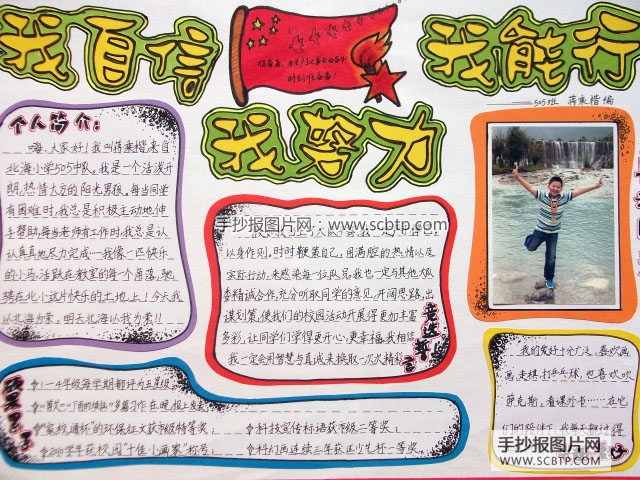 我自信
我努力
我能行
时刻准备着!
505班 蒋乘楷 编
个人简介:
嗨,大家好!我叫蒋乘楷来自
北海小学505中队。我是一个活泼开
朗,热情大方的阳光男孩。每当同学
有困难时,我总是积极主动地伸
手帮助,每当老师有工作时,我总是认
认真真地尽力完成…我像一匹快乐
的小马,活跃在教室的每一个角落,驰
骋在北小这片快乐的土地上!今天我
以北海为荣,明天北海以我为荣!!
手抄报图片网:www.scbtp.com
以身作则,时时鞭策自己,用满腔的热情以及
实际行动,来感染每一位队员,我也一定与其他队
委精诚合作,充分听取同学的意见,开阔思路,出
谋划策,使我们的校园活动开展得更加丰富
多彩,让同学们学得更开心,更幸福,我相信
我一定会用智慧与真诚来换取一次次精彩
竞选宣言
1-4年级每学期都评为五星级
多篇习作在晚报上发表
环保征文获市级特等奖;
2010学年获校园"十佳小画家"称号;
科技宣传标语获市级二等奖;
科幻画连续三年获区少儿杯一等奖。
我的爱好十分广泛,喜欢画
画,走棋,打乒乓球,也喜欢吹
萨克斯,看课外书……在它
们的陪伴下,我每天都过得
手抄报图片网
WWW.SCBTP.COM